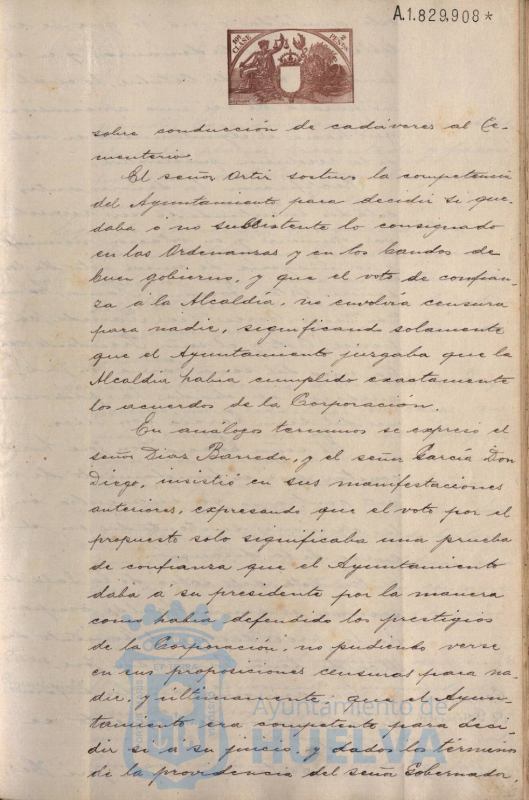 A.1.829,908*
10ª CLASE
2 PESETAS
sobre conducción de cadáveres al Ce-
menterio.
El señor Ortiz sostuvo la competencia
del Ayuntamiento para decidir si que-
daba ó no subsistente lo consignado
en las Ordenanzas y en los bandos de
buen gobierno, y que el voto de confian-
za á la Alcaldia, no envolvia censura
para nadie, significando solamente
que el Ayuntamiento juzgaba que la
Alcaldia habia cumplido exactamente
los acuerdos de la Corporación.
En análogos terminos se expresó el
señor Diaz Barreda, y el señor García Don
Diego, insistió en sus manifestaciones
anteriores, expresando que el voto por el
propuesto solo significaba una prueba
de confianza que el Ayuntamiento
daba á su presidente por la manera
como habia defendido los prestigios
de la Corporación, no pudiendo verse
en sus proposiciones censuras para na-
die, y ultimamente que el Ayun-
tamiento era competente para deci-
dir si á su juicio, y dados los terminos
de la providencia del señor Gobernador,
Ayuntamiento de
HUELVA